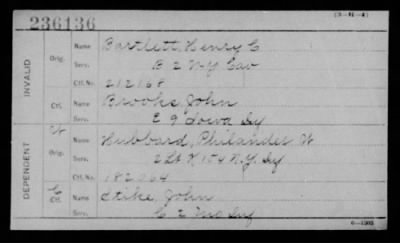 236136
(3-H-4)
INVALID
Orig. Name Bartlett, Henry C
Serv. B 2 N.Y. Cav
Ctf. No. 212168
Ctf. Name Brooks, John
Serv. E 9" Iowa Inf
DEPENDENT
W
Orig. Name Hubbard, Philander W
Serv. 2 Lt K 154 N.Y. Inf
Ctf. No. 182064
C
Ctf. Name Stike, John
Serv. C 2 Mo Inf
6-1903